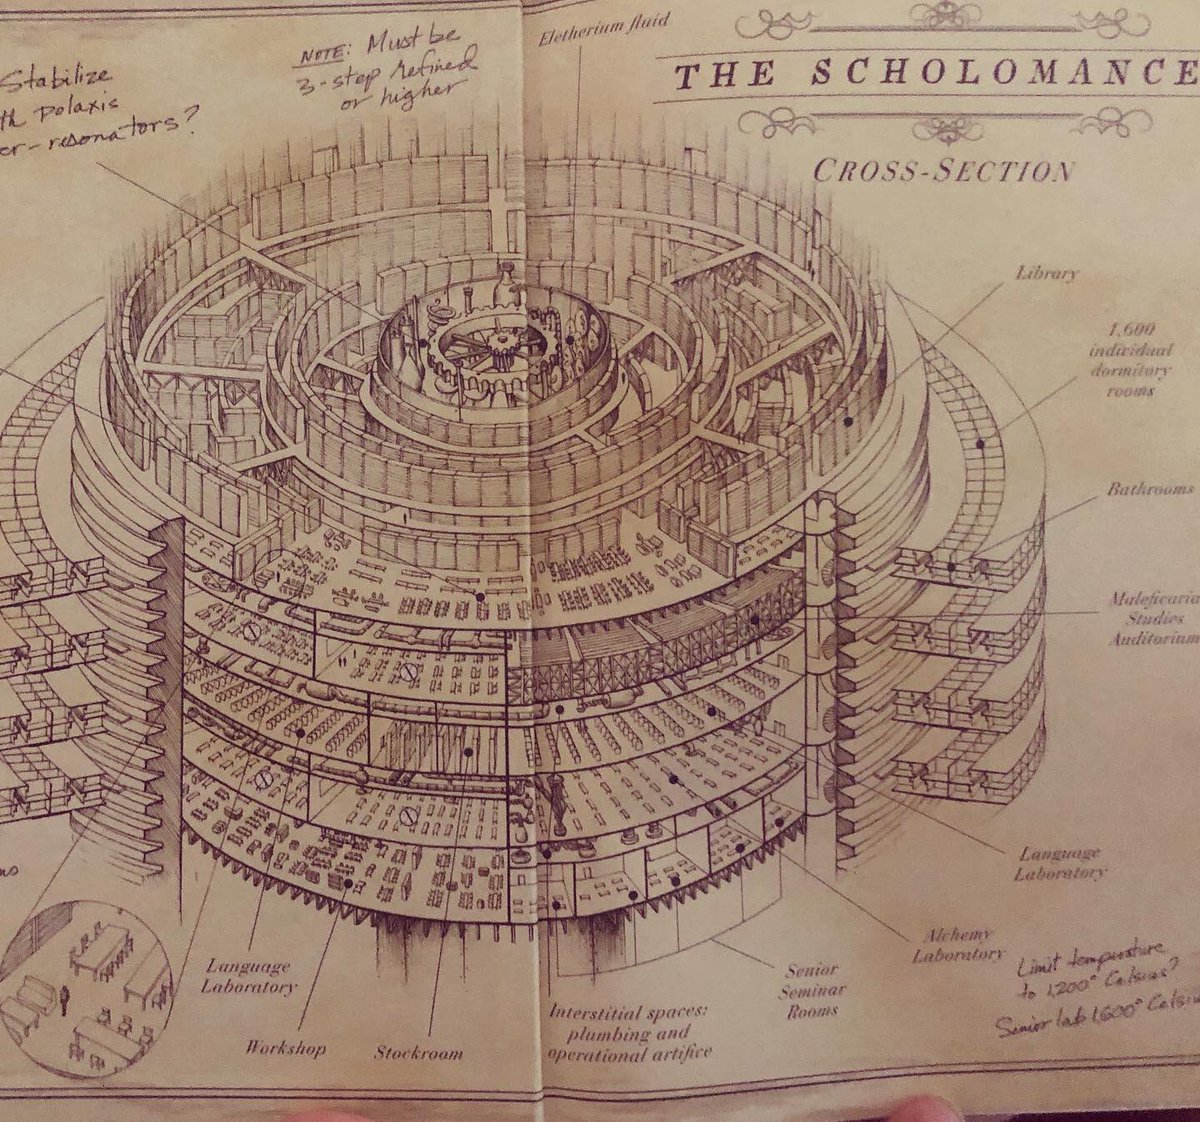 Stabilize
polaxis
er-resonators?
NOTE: Must be
3-step refined
or higher
Eletherium fluid
THE SCHOLOMANCE
CROSS-SECTION
Library
1,600
individual
dormitory
rooms
Bathrooms
Maleficaria
Studies
Auditorium
Language
Laboratory
Alchemy
Laboratory
Limit temperature
to 1,200° Celsius?
Senior lab 1,600° Celsius
Senior
Seminar
Rooms
Interstitial spaces:
plumbing and
operational artifice
Language
Laboratory
Workshop
Stockroom